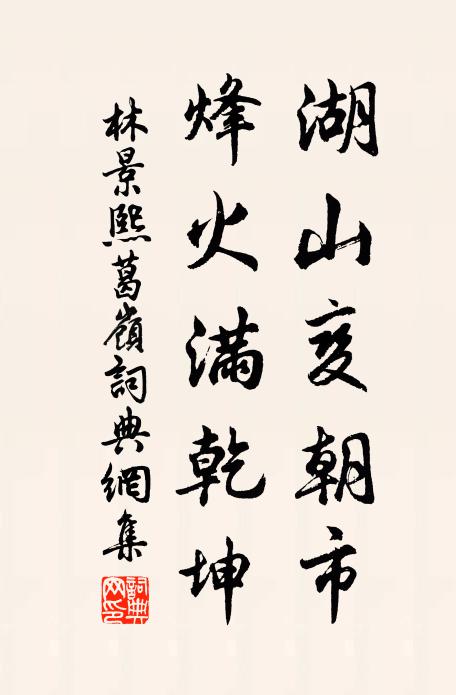 湖山变朝市
烽火满乾坤
林景熙葛嶺詞典網集
詞典网印